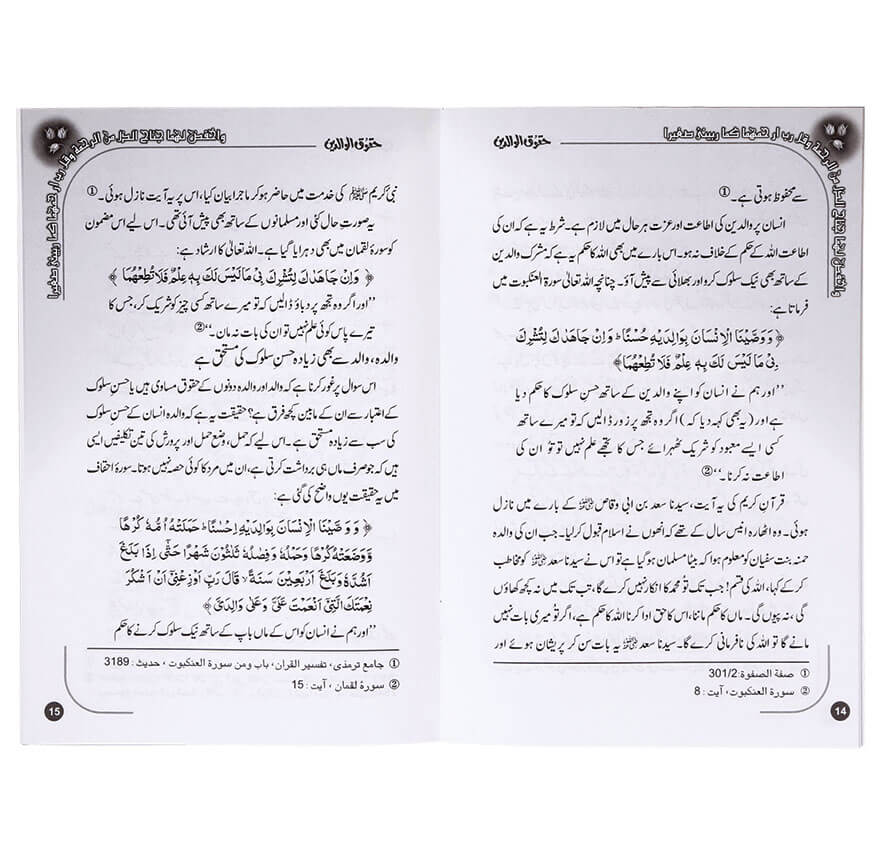 واخفض لهما جناح الذل من الرحمة وقل رب ارحمهما كما ربيني صغيرا
حقوق الوالدین
سے محفوظ ہوتی ہے۔ ①
انسان پر والدین کی اطاعت اور عزت ہر حال میں لازم ہے۔ شرط یہ ہے کہ ان کی
اطاعت اللہ کے حکم کے خلاف نہ ہو۔ اس بارے میں بھی اللہ کا حکم یہ ہے کہ مشرک والدین
کے ساتھ بھی نیک سلوک کرو اور بھلائی سے پیش آؤ۔ چنانچہ اللہ تعالیٰ سورۃ العنکبوت میں
فرماتا ہے:
﴿ وَوَصَّيْنَا الْاِنْسَانَ بِوَالِدَيْهِ حُسْنًا ؕ وَاِنْ جَاهَدٰكَ لِتُشْرِكَ
بِيْ مَا لَيْسَ لَكَ بِهٖ عِلْمٌ فَلَا تُطِعْهُمَا﴾
’’اور ہم نے انسان کو اپنے والدین کے ساتھ حسنِ سلوک کا حکم دیا
ہے اور (یہ بھی کہہ دیا کہ) اگر وہ تجھ پر زور ڈالیں کہ تو میرے ساتھ
کسی ایسے معبود کو شریک ٹھہرائے جس کا تجھے علم نہیں تو تُو ان کی
اطاعت نہ کرنا۔‘‘ ②
قرآنِ کریم کی یہ آیت، سیدنا سعد بن ابی وقاص ؓ کے بارے میں نازل
ہوئی۔ وہ اٹھارہ انیس سال کے تھے کہ انھوں نے اسلام قبول کر لیا۔ جب ان کی والدہ
حمنہ بنت سفیان کو معلوم ہوا کہ بیٹا مسلمان ہو گیا ہے تو اس نے سیدنا سعد ؓ کو مخاطب
کر کے کہا، اللہ کی قسم! جب تک تُو محمد کا انکار نہیں کرے گا، تب تک میں نہ کچھ کھاؤں
گی، نہ پیوں گی۔ ماں کا حکم ماننا، اس کا حق ادا کرنا اللہ کا حکم ہے، اگر تو میری بات نہیں
مانے گا تو اللہ کی نافرمانی کرے گا۔ سیدنا سعد ؓ یہ بات سن کر پریشان ہوئے اور
① صفة الصفوة: 301/2
② سورة العنكبوت، آیت : 8
14
واخفض لهما جناح الذل من الرحمة وقل رب ارحمهما كما ربيني صغيرا
حقوق الوالدین
نبی کریم ﷺ کی خدمت میں حاضر ہو کر ماجرا بیان کیا، اس پر یہ آیت نازل ہوئی۔ ①
یہ صورتِ حال کئی اور مسلمانوں کے ساتھ بھی پیش آئی تھی۔ اس لیے اس مضمون
کو سورۂ لقمان میں بھی دہرایا گیا ہے۔ اللہ تعالیٰ کا ارشاد ہے:
﴿ وَاِنْ جَاهَدٰكَ لِتُشْرِكَ بِيْ مَا لَيْسَ لَكَ بِهٖ عِلْمٌ فَلَا تُطِعْهُمَا ﴾
’’اور اگر وہ تجھ پر دباؤ ڈالیں کہ تو میرے ساتھ کسی چیز کو شریک کر، جس کا
تیرے پاس کوئی علم نہیں تو ان کی بات نہ مان۔‘‘ ②
والدہ، والد سے بھی زیادہ حسنِ سلوک کی مستحق ہے
اس سوال پر غور کرنا ہے کہ والد اور والدہ دونوں کے حقوق مساوی ہیں یا حسنِ سلوک
کے اعتبار سے ان کے مابین کچھ فرق ہے؟ حقیقت یہ ہے کہ والدہ انسان کے حسنِ سلوک
کی سب سے زیادہ مستحق ہے۔ اس لیے کہ حمل، وضعِ حمل اور پرورش کی تین تکلیفیں ایسی
ہیں کہ جو صرف ماں ہی برداشت کرتی ہے، ان میں مرد کا کوئی حصہ نہیں ہوتا۔ سورۂ احقاف
میں یہ حقیقت یوں واضح کی گئی ہے:
﴿ وَوَصَّيْنَا الْاِنْسَانَ بِوَالِدَيْهِ اِحْسٰنًا ؕ حَمَلَتْهُ اُمُّهٗ كُرْهًا
وَّوَضَعَتْهُ كُرْهًا وَحَمْلُهٗ وَفِصٰلُهٗ ثَلٰثُوْنَ شَهْرًا حَتّٰى اِذَا بَلَغَ
اَشُدَّهٗ وَبَلَغَ اَرْبَعِيْنَ سَنَةً ۙ قَالَ رَبِّ اَوْزِعْنِيْ اَنْ اَشْكُرَ
نِعْمَتَكَ الَّتِيْ اَنْعَمْتَ عَلَيَّ وَعَلٰى وَالِدَيَّ ﴾
’’اور ہم نے انسان کو اس کے ماں باپ کے ساتھ نیک سلوک کرنے کا حکم
① جامع ترمذی، تفسیر القرآن، باب ومن سورة العنكبوت، حدیث : 3189
② سورة لقمان، آیت : 15
15